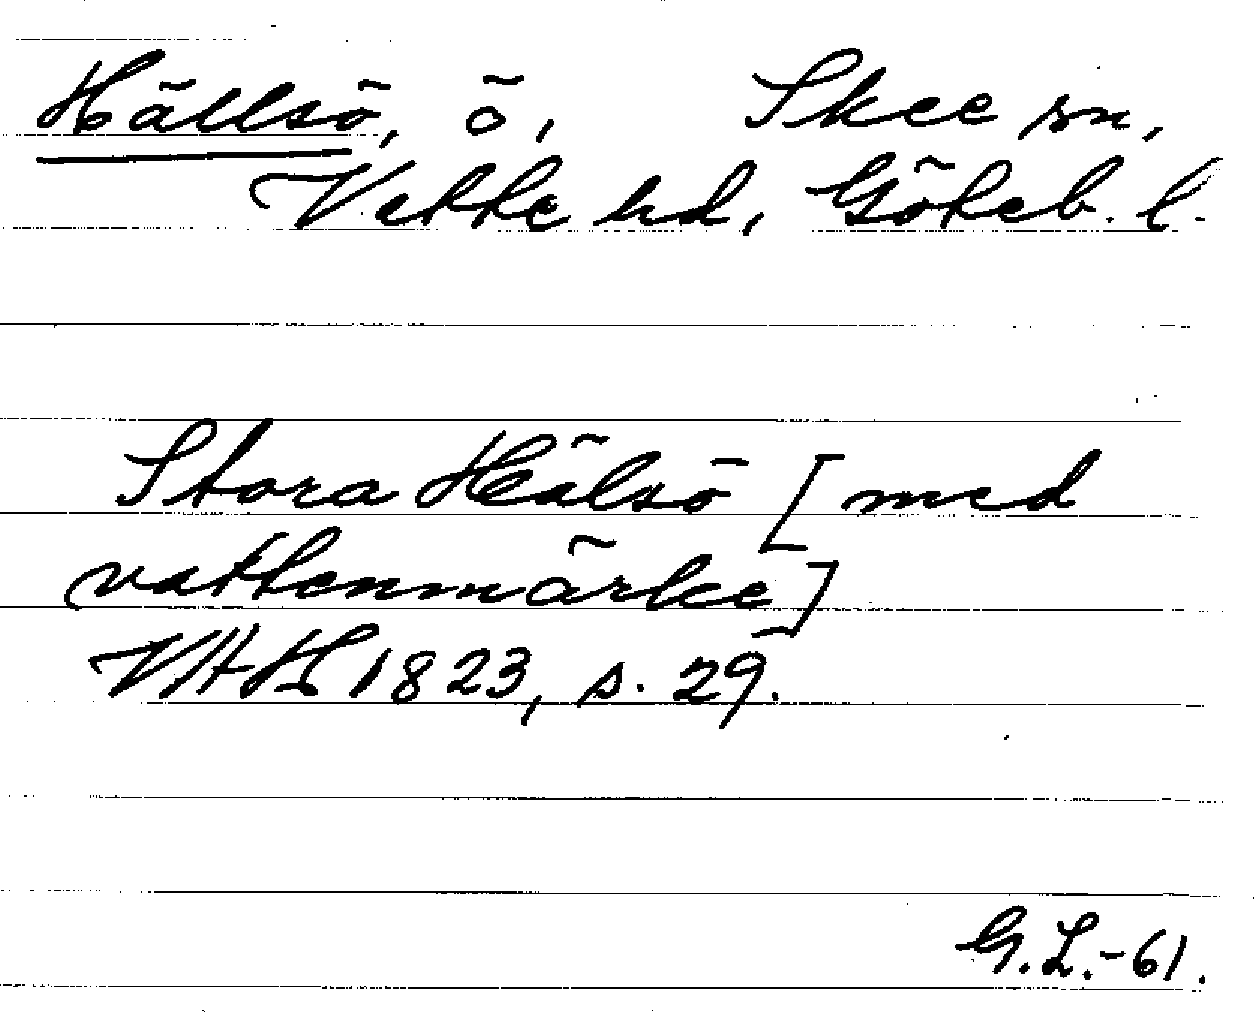 Hällsö, ö, Skee sn,
Vette hd, Göteb. l.
Stora Hälsö [med
vattenmärke]
VAH 1823, s. 29.
G.L.-61.